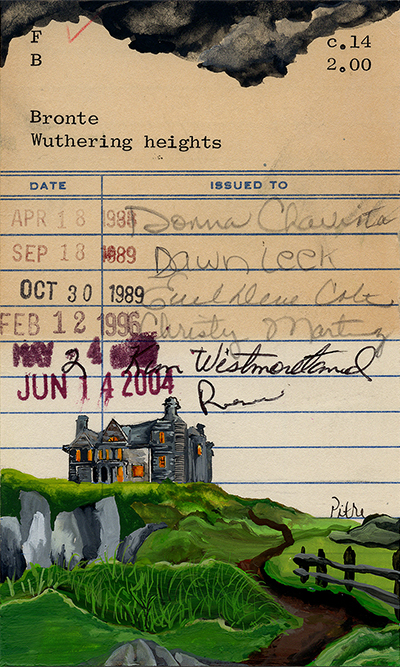 F
B
c.14
2.00
Bronte
Wuthering heights
DATE ISSUED TO
APR 18 1988 Donna
SEP 18 1989 Dawn Leek
OCT 30 1989
FEB 12 1996 Christy Martinez
MAY 24 Kim Westmoreland
JUN 14 2004
Pitre